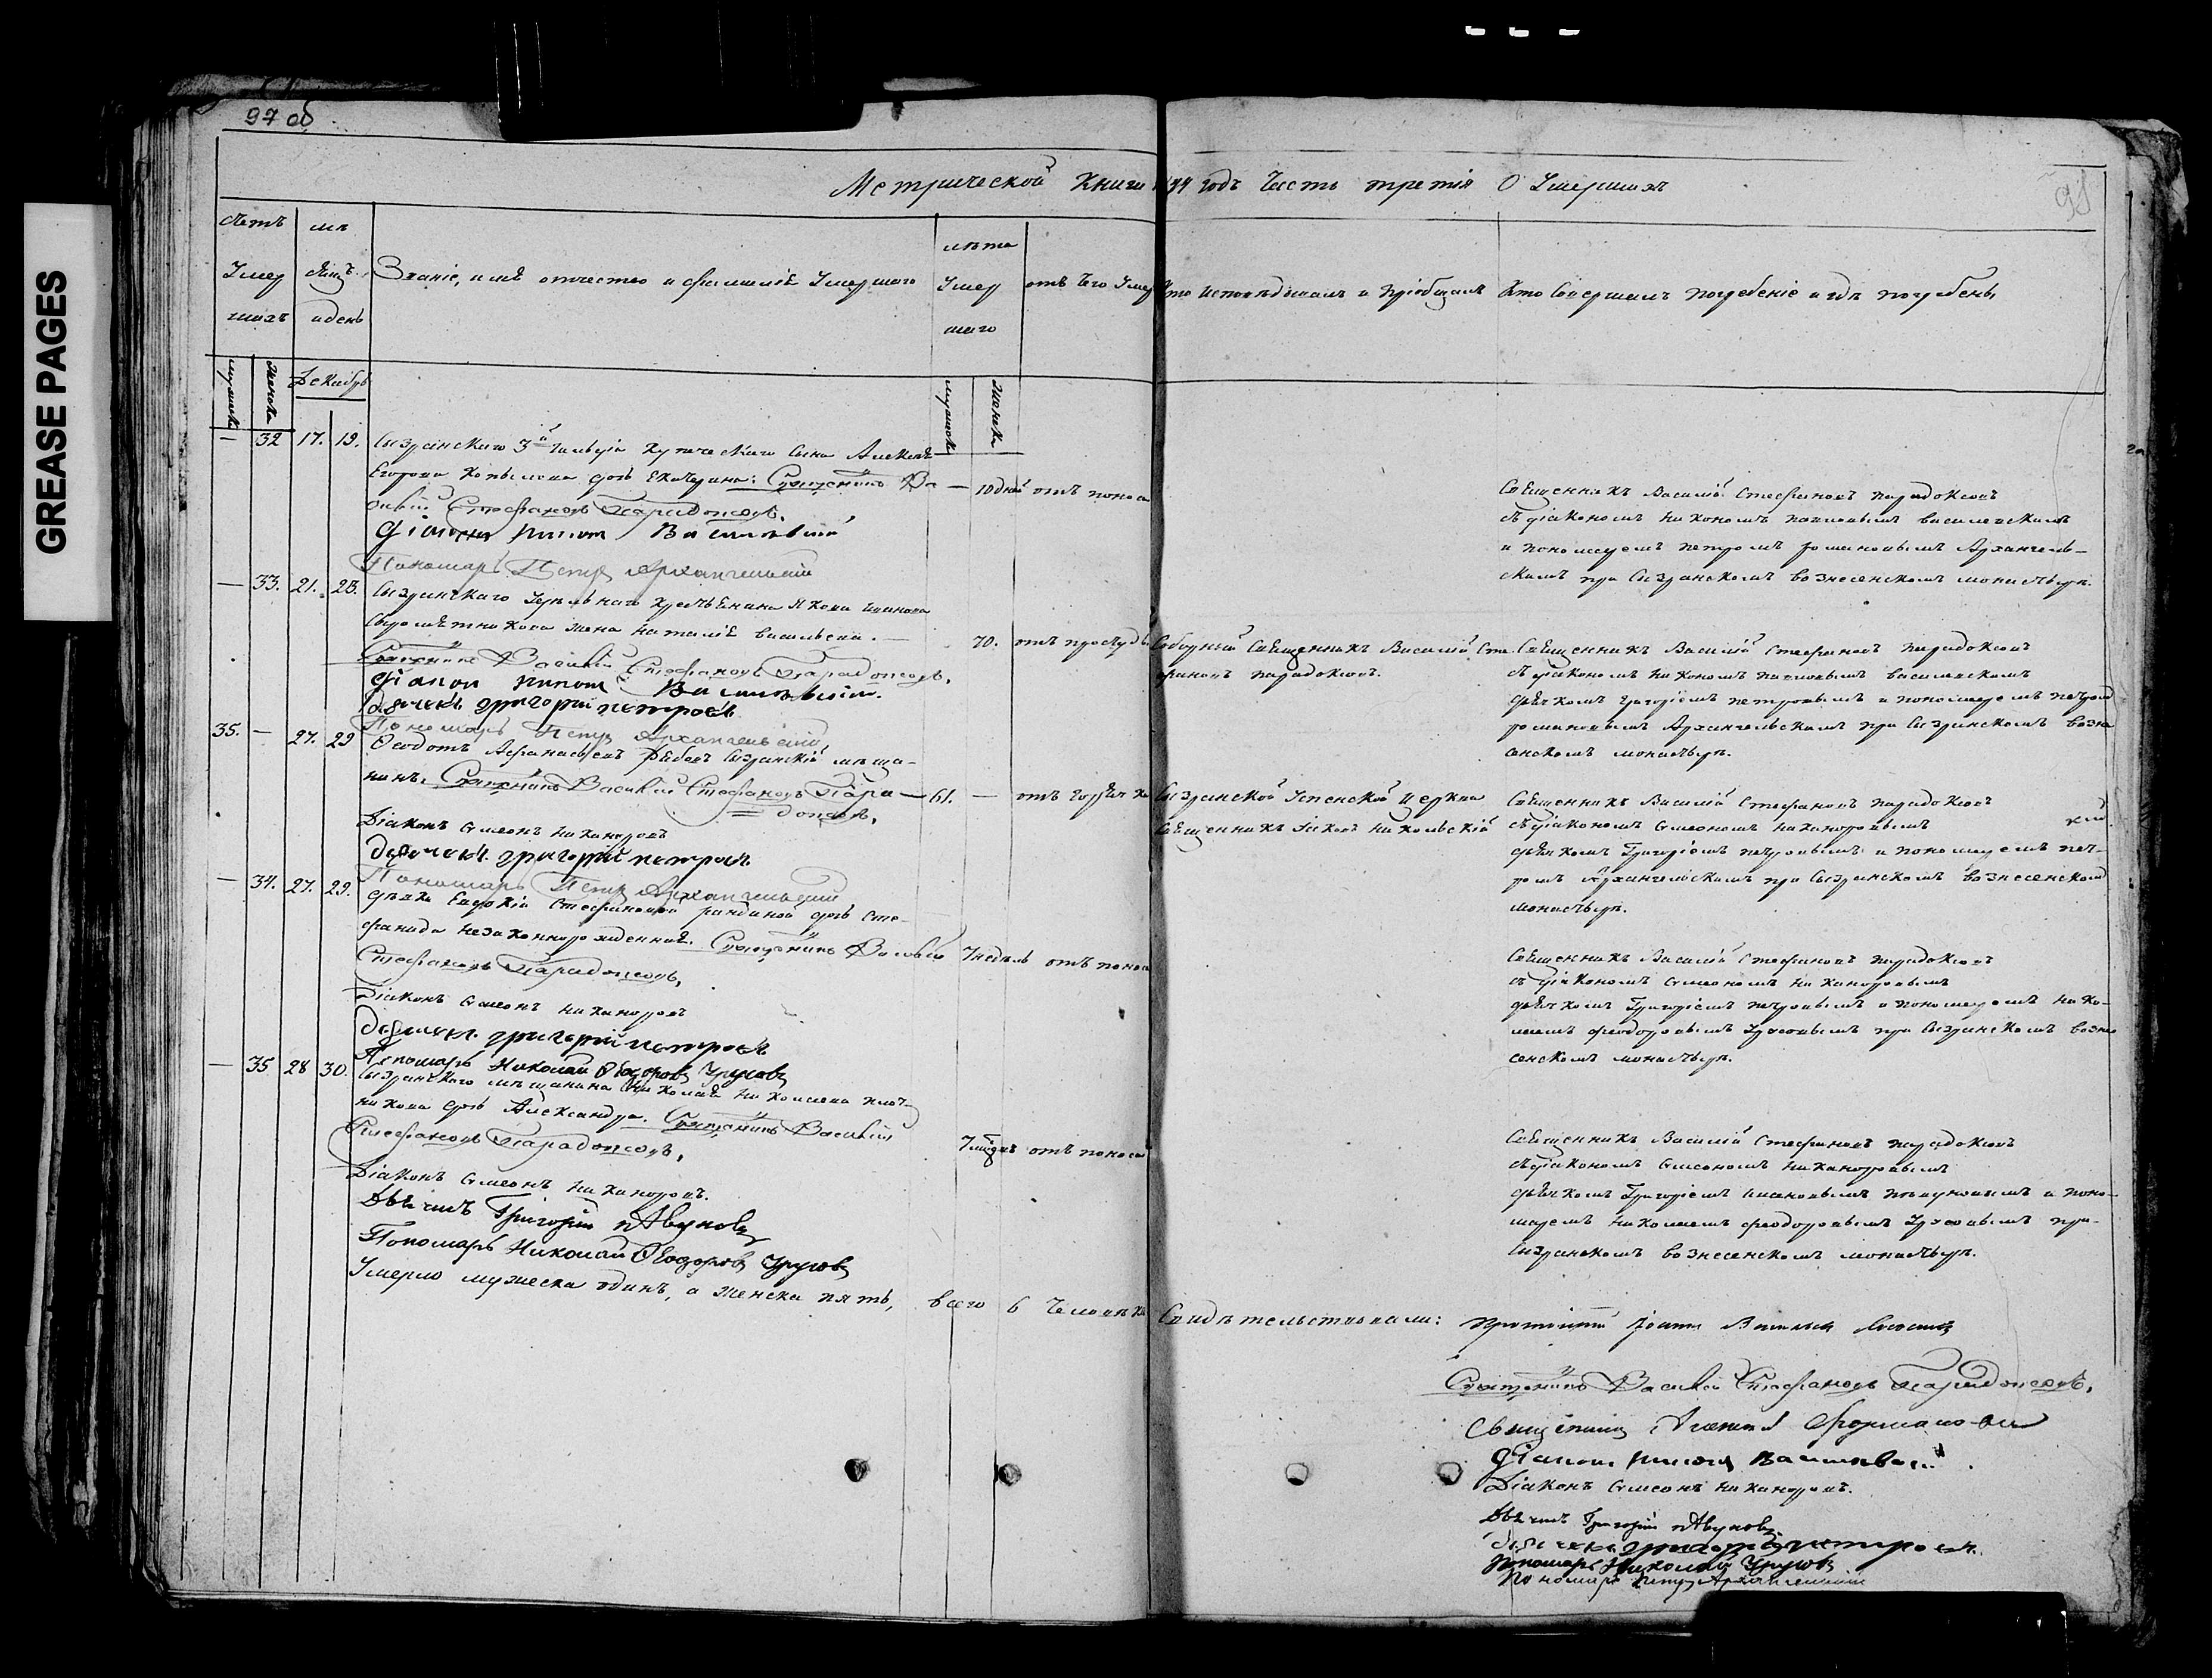 GREASE PAGES
97 об
98
Метрической Книги 1844 годъ Часть третія О Умершихъ
Счетъ Умершихъ
мужеска
женска
мѣсяцъ и день
Декабрь
Званіе, имя отчество и фамилія Умершаго
лѣта Умершаго
мужеска
женска
отъ Чего Умер
Кто Исповѣдывалъ и Пріобщалъ
Кто Совершалъ погребеніе и гдѣ погребены
— 32 17. 19.
Сызранскаго 3й Гильдіи Купеческаго сына Алексѣя
Егорова Копылова дочь Екатерина. Священникъ Ва-
силій Стефановъ Парадоксовъ.
діаконъ Никонъ Василевскій
Пономарь Петръ Архангельскій
— 10 дней отъ поноса
Священникъ Василій Стефановъ Парадоксовъ
съ діакономъ Никономъ Василевскимъ
и пономаремъ Петромъ Романовымъ Архангель-
скимъ при Сызранскомъ вознесенскомъ монастырѣ.
— 33. 21. 23.
Сызранскаго Удѣльнаго Крестьянина Якова Иванова
Сыромятникова жена Наталія Васильева. —
Священникъ Василій Стефановъ Парадоксовъ.
діаконъ Никонъ Василевскій.
дьячекъ григорій петровъ
Пономарь Петръ Архангельскій
70. отъ простуды
Соборный Священникъ Василій Сте-
фановъ Парадоксовъ.
Священникъ Василій Стефановъ Парадоксовъ
съ діакономъ Никономъ Василевскимъ
дьячкомъ Григоріемъ Петровымъ и пономаремъ Петромъ
Романовымъ Архангельскимъ при Сызранскомъ возне-
сенскомъ монастырѣ.
35. — 27. 29
Ѳеодотъ Афанасьевъ Рябовъ Сызранскій мѣща-
нинъ. Священникъ Василій Стефановъ Пара-
доксовъ.
Діаконъ Симеонъ Никаноровъ
дьячекъ григорій петровъ
Пономарь Петръ Архангельскій
61. — отъ горячки
Сызранской Успенской Церкви
Священникъ Іаковъ Никольскій
Священникъ Василій Стефановъ Парадоксовъ
съ діакономъ Симеономъ Никаноровымъ
дьячкомъ Григоріемъ Петровымъ и пономаремъ Пет-
ромъ Архангельскимъ при Сызранскомъ вознесенскомъ
монастырѣ.
— 34. 27. 29.
дѣвки Евдокіи Стефановой дочь Сте-
фанида незаконнорожденная. Священникъ Василій
Стефановъ Парадоксовъ.
Діаконъ Симеонъ Никаноровъ
дьячекъ григорій петровъ
Пономарь Николай Ѳеодоровъ Урусовъ
7 недѣль отъ поноса
Священникъ Василій Стефановъ Парадоксовъ
съ діакономъ Симеономъ Никаноровымъ
дьячкомъ Григоріемъ Петровымъ и пономаремъ Нико-
лаемъ Феодоровымъ Урусовымъ при Сызранскомъ возне-
сенскомъ монастырѣ.
— 35 28 30.
Сызранскаго мѣщанина Николая Николаева Плот-
никова дочь Александра. Священникъ Василій
Стефановъ Парадоксовъ.
Діаконъ Симеонъ Никаноровъ.
Дьячекъ Григорій
Пономарь Николай Ѳеодоровъ Урусовъ
отъ поноса
Священникъ Василій Стефановъ Парадоксовъ
съ діакономъ Симеономъ Никаноровымъ
дьячкомъ Григоріемъ и поно-
маремъ Николаемъ Феодоровымъ Урусовымъ при
Сызранскомъ вознесенскомъ монастырѣ.
Умерло мужеска одинъ, а женска пять, всего 6 Человѣкъ Свидѣтельствовали:
Протоіерей Іоаннъ
Священникъ Василій Стефановъ Парадоксовъ.
Священникъ
діаконъ Никонъ Василевскій.
Діаконъ Симеонъ Никаноровъ.
Дьячекъ Григорій
дьячекъ григорій петровъ
Пономарь Николай Урусовъ
Пономарь Петръ Архангельскій